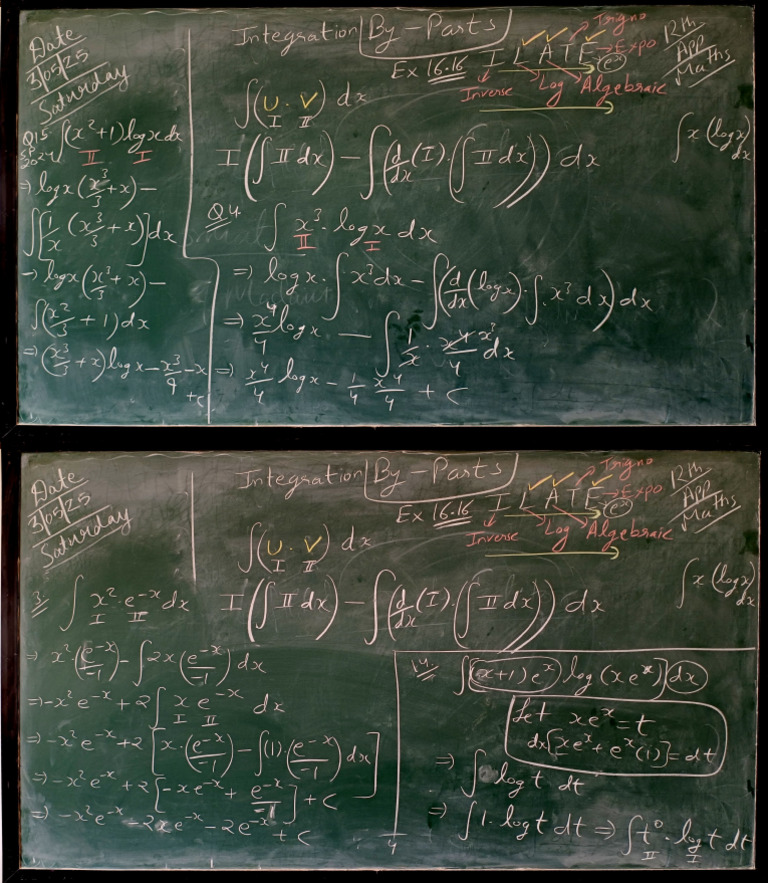 Date
3/05/25
Saturday
Integration By-Parts
Ex 16.16
I L A T E
Trigno
→ Expo
(e^x)
Inverse
Log
Algebraic
App
Maths
∫(U · V) dx
I II
∫ x (log x) dx
I(∫ II dx) − ∫(d/dx (I) · (∫ II dx)) dx
Q15 ∫(x²+1) log x dx
2024 II I
⇒ log x (x³/3 + x) −
∫[1/x (x³/3 + x)] dx
→ log x (x³/3 + x) −
∫(x²/3 + 1) dx
⇒ (x³/3 + x) log x − x³/9 − x
+ c
Q4. ∫ x³ · log x dx
II I
⇒ log x · ∫ x³ dx − ∫(d/dx (log x) · ∫ · x³ dx) dx
⇒ x⁴/4 log x · − ∫ 1/x · x⁴/4 x³ dx
⇒ x⁴/4 log x − 1/4 x⁴/4 + c
Date
3/05/25
Saturday
Integration By-Parts
Ex 16.16
I L A T E
Trigno
→ Expo
(e^x)
Inverse
Log
Algebraic
App
Maths
∫(U · V) dx
I II
∫ x (log x) dx
I(∫ II dx) − ∫(d/dx (I) · (∫ II dx)) dx
3. ∫ x² · e^-x dx
I II
⇒ x² (e^-x/-1) − ∫ 2x (e^-x/-1) dx
⇒ −x² e^-x + 2 ∫ x e^-x dx
I II
⇒ −x² e^-x + 2 [x · (e^-x/-1) − ∫(1) · (e^-x/-1) dx]
⇒ −x² e^-x + 2 [−x e^-x + e^-x/-1] + c
⇒ −x² e^-x − 2x e^-x − 2e^-x + c
14. ∫[(x+1) e^x) log (x e^x)] dx
Let x e^x = t
dx[x e^x + e^x (1)] = dt
⇒ ∫ log t dt
⇒ ∫ 1 · log t dt ⇒ ∫ t⁰ · log t dt
II I